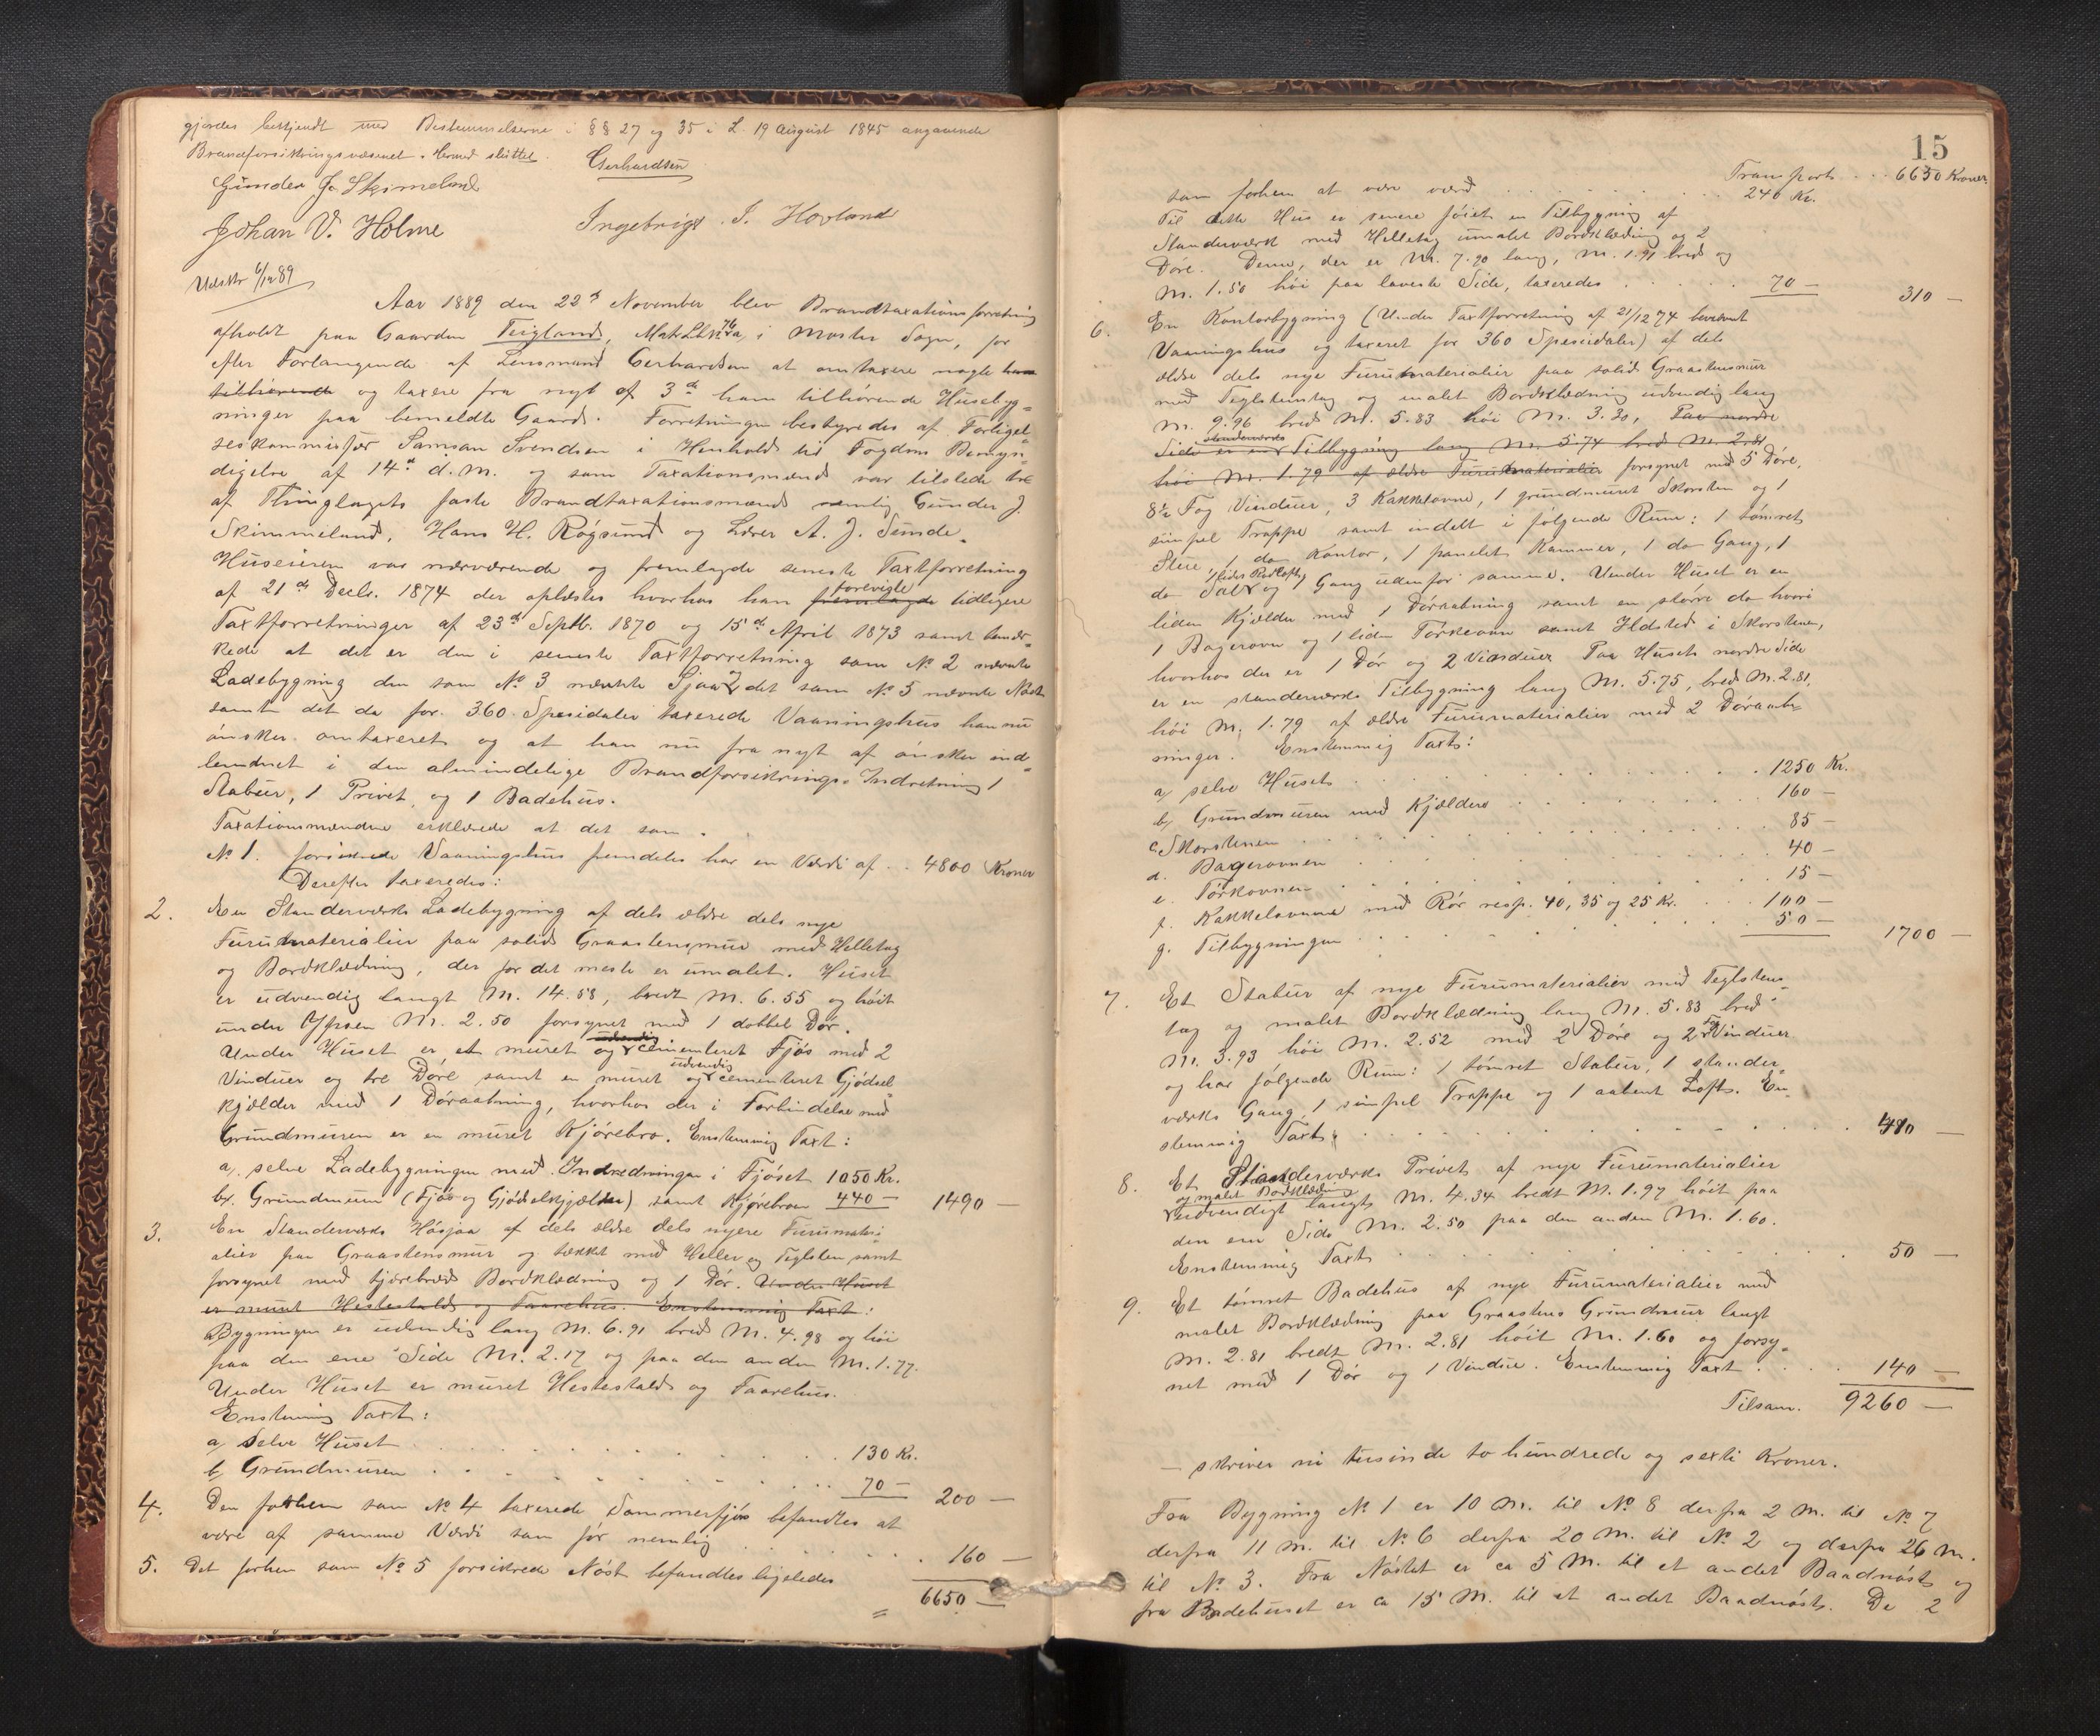 gjordes bekjendt med Bestemmelserne i §§ 27 og 35 i L. 19 August 1845 angaaende
Brandforsikringsvæsenet. Hermed sluttet.
Gerhardsen
Gunder J. Skimeland
Johan V. Holme
Ingebrigt I. Hovland
Udskr 6/12 89
Aar 1889 den 22d November blev Brandtaxationsforretning
afholdt paa Gaarden Teigland, Matr. i Moster Sogn, for
efter Forlangende af Lensmand Gerhardsen at omtaxere nogle ham
tilhørende og taxere fra nyt af 3de ham tilhørende Husebyg=
ninger paa bemeldte Gaard. Forretningen bestyredes af Forligel=
seskommissær Samson Svendsen i Henhold til Fogdens Bemyn=
digelse af 14d d.M. og som Taxationsmænd var tilstede tre
af Thinglagets faste Brandtaxationsmænd nemlig Gunder J.
Skimmeland, Hans H. Røgsund og Lærer A. J. Sunde.
Huseieren var nærværende og fremlagde seneste Taxtforretning
af 21de Decbr. 1874 der oplæstes hvorhos han foreviste fremlagde tidligere
Taxtforretninger af 23d Septb. 1870 og 15d April 1873 samt bemær=
kede at det er den i seneste Taxtforretning som No 2 nævnte
Ladebygning den som No 3 nævnte Sjaa og det som No 5 nævnte Nøst
samt det da for 360 Spesidaler taxerede Vaaningshus han nu
ønsker omtaxeret og at han nu fra nyt af ønsker ind=
lemmet i den almindelige Brandforsikrings-Indretning 1
Stabur, 1 Privet og 1 Badehus.
Taxationsmændene erklærede at det som
No 1. forsikrede Vaaningshus fremdeles har en Værdi af .. 4800 Kroner
Derefter taxeredes:
2. En Standerværks Ladebygning af dels ældre dels nye
Furumaterialier paa solid Graastensmur med Helletag
og Bordklædning, der for det meste er umalet. Huset
er udvendig langt M. 14.53, bredt M. 6.55 og høit
under Ufsen M. 2.50 forsynet med 1 dobbel Dør.
Under Huset er et muret og cementeret Fjøs med 2
Vinduer og tre Døre samt en muret og udvendig cementeret Gjødsel
kjælder med 1 Døraabning, hvorhos der i Forbindelse med
Grundmuren er en muret Kjørebro. Enstemmig Taxt:
a) selve Ladebygningen med Indredningen i Fjøset 1050 Kr.
b) Grundmuren (Fjøs og Gjødselkjælder) samt Kjørebroen 440 — 1490 —
3. En Standerværks Høsjaa af dels ældre dels nyere Furumateri=
alier paa Graastensmur og tækket med Heller og Teglsten samt
forsynet med tjærebredt Bordklædning og 1 Dør. Under Huset
er muret Hestestald og Faarehus. Enstemmig Taxt:
Bygningen er udvendig lang M. 6.91 bred M. 4.98 og høi
paa den ene Side M. 2.17 og paa den anden M. 1.77.
Under Huset er muret Hestestald og Faarehus.
Enstemmig Taxt:
a) selve Huset . . . 130 Kr.
b) Grundmuren . . . 70 — 200 —
4. Den forhen som No 4 taxerede Sommerfjøs befandtes at
være af samme Værdi som før nemlig . . . 160 —
5. Det forhen som No 5 forsikrede Nøst befandtes ligeledes
6650 —
15
Transport . . . 6650 Kroner
som forhen at være værd . . . 240 Kr.
Til dette Hus er senere føiet en Tilbygning af
Standerværk med Helletag umalet Bordklædning og 2
Døre. Denne, der er M. 7.90 lang, M. 1.91 bred og
M. 1.50 høi paa laveste Side, taxeredes . . . 70 — 310 —
6. En Kontorbygning (Under Taxtforretning af 21/12 74 benævnt
Vaaningshus og taxeret for 360 Spesidaler) af dels
ældre dels nye Furumaterialier paa solid Graastensmur
med Teglstenstag og malet Bordklædning udvendig lang
M. 9.96 bred M. 5.83 høi M. 3.30, Paa nordre
Side er en standerværks Tilbygning lang M. 5.74 bred M. 2.81
høi M. 1.79 af ældre Furumaterialier forsynet med 5 Døre,
8½ Fag Vinduer, 3 Kakkelovne, 1 grundmuret Skorsten og 1
simpel Trappe samt indelt i følgende Rum: 1 tømret
Stue, 1 do Kontor, 1 panelet Kammer, 1 do Gang, 1
do Sal og 1 Gang udenfor samme. Under Huset er en
liden Kjælder med 1 Døraabning samt en større do hvori
1 Bagerovn og 1 liden Tørkeovn samt Ildsted i Skorstenen,
hvorhos der er 1 Dør og 2 Vinduer Paa Husets nordre Side
er en standerværks Tilbygning lang M. 5.75, bred M. 2.81,
høi M. 1.79 af ældre Furumaterialier med 2 Døraab=
ninger. Enstemmig Taxt:
a) selve Huset . . . 1250 Kr.
b) Grundmuren med Kjældere . . . 160 —
c. Skorstenen . . . 85 —
d. Bagerovnen . . . 40 —
e. Tørkovnen . . . 15 —
f. Kakkelovnene med Rør resp. 40, 35 og 25 Kr. . . . 100 —
g. Tilbygningen . . . 50 — 1700 —
7. Et Stabur af nye Furumaterialier med Teglstens=
tag og malet Bordklædning lang M. 5.83 bred
M. 3.93 høi M. 2.52 med 2 Døre og 2 Fag Vinduer
og har følgende Rum: 1 tømret Stabur, 1 stander=
værks Gang, 1 simpel Trappe og 1 aabent Loft. En=
stemmig Taxt . . . 410 —
8. Et Standerværks Privet af nye Furumaterialier
og malet Bordklædning
udvendigt langt M. 4.34 bredt M. 1.97 høit paa
den ene Side M. 2.50 paa den anden M. 1.60.
Enstemmig Taxt . . . 50 —
9. Et tømret Badehus af nye Furumaterialier med
malet Bordklædning paa Graastens Grundmur langt
M. 2.81 bredt M. 2.81 høit M. 1.60 og forsy=
net med 1 Dør og 1 Vindue. Enstemmig Taxt . . . 140 —
Tilsam. 9260 —
— skriver ni tusinde to hundrede og sexti Kroner.
Fra Bygning No 1 er 10 M. til No 8 derfra 2 M. til No 7
derfra 11 M. til No 6 derfra 20 M. til No 2 og derfra 26 M.
til No 3. Fra Nøstet er ca 5 M. til et andet Baadnøst og
fra Badehuset er ca 15 M. til et andet Baadnøst. De 2